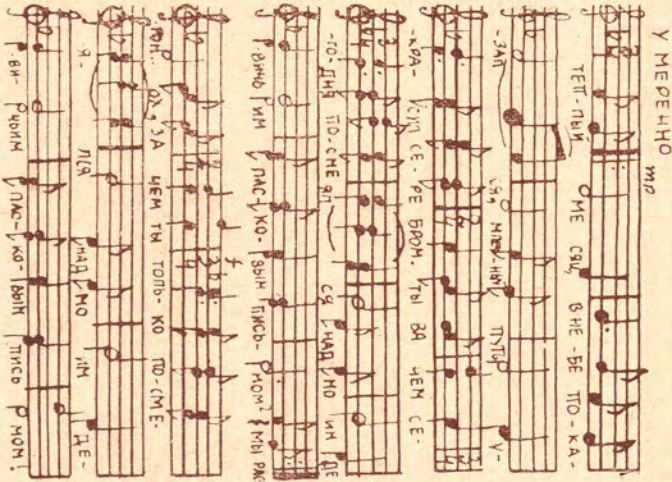 УМЕРЕННО mp
ТЕП-ЛЫЙ МЕ СЯЦ, В НЕ-БЕ ПО-КА-
-ЗАЛ СЯ, МЛЕЧ-НЫЙ ПУТЬ У-
-КРА-СИЛ СЕ-РЕ БРОМ. ТЫ ЗА ЧЕМ СЕ-
-ГО-ДНЯ ПО-СМЕ ЯЛ СЯ НАД МО ИМ ДЕ
Р-ВИЧЬ ИМ ЛАС-КО-ВЫМ ПИСЬ-МОМ? МЫ РАС
-РОМ.. ОХ, ЗА ЧЕМ ТЫ ТОЛЬ-КО ПО-СМЕ-
Я- ЛСЯ НАД МО ИМ ДЕ-
Р-ВИ-ЧЬИМ ЛАС-КО-ВЫМ ПИСЬ МОМ!